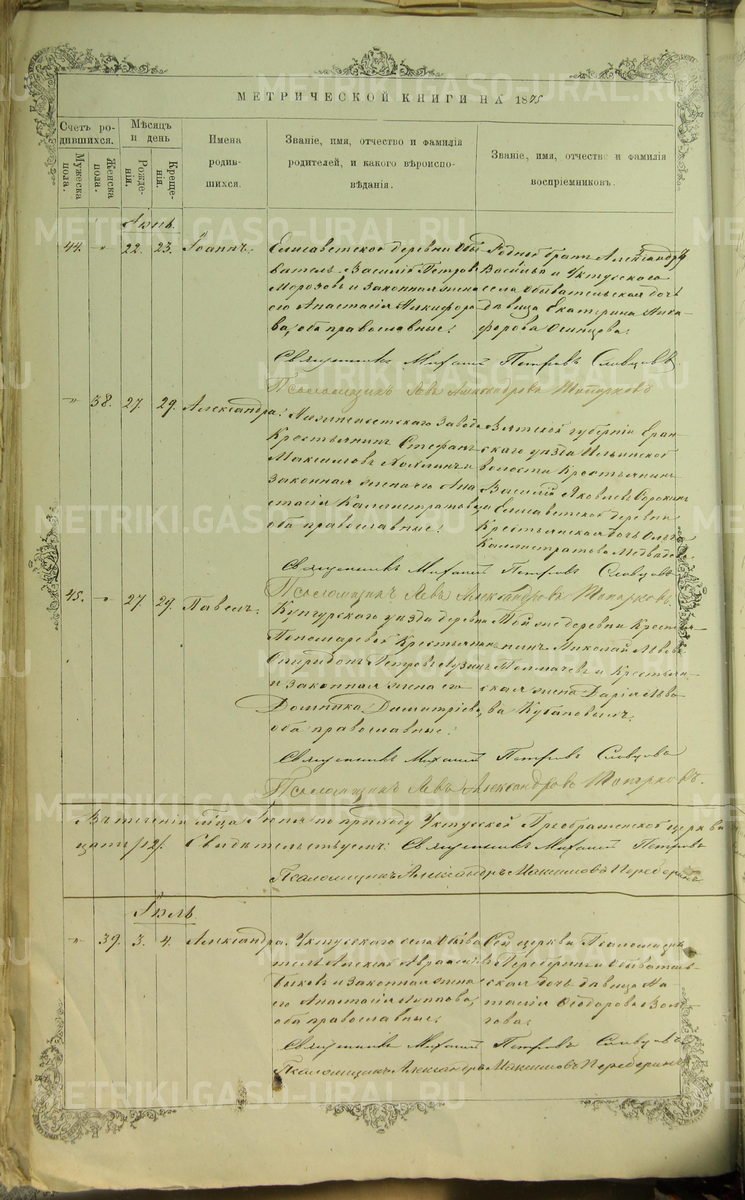 МЕТРИЧЕСКОЙ КНИГИ НА 1875
Счетъ родившихся.
Мужеска пола.
Женска пола.
Мѣсяцъ и день
Рожденія.
Крещенія.
Имена родившихся.
Званіе, имя, отчество и фамилія родителей, и какого вѣроисповѣданія.
Званіе, имя, отчество и фамилія воспріемниковъ.
Іюнь.
44. " 22. 23. Іоаннъ.
Елисаветской деревни Обы
ватель Василій Петровъ
Морозовъ и законная жена
его Анастасія Никифоро
ва, оба православные.
Родный братъ Александръ
Васильевъ и Уктусскаго
села Обывательская дочь
дѣвица Екатерина Ники
форова Осинцова.
Священникъ Михаилъ Петровъ Словцовъ
Псаломщикъ Левъ Александровъ Топорковъ
" 38. 27. 29. Александра.
Завода
Крестьянинъ Стефанъ
Максимовъ и
законная жена его Ана
стасія Каллистратова
оба православные.
Вятской губерніи Яран
скаго уѣзда Ильинской
волости Крестьянинъ
Василій Яковлевъ
и Елисаветской деревни
Крестьянская дочь Ольга
Каллистратова
Священникъ Михаилъ Петровъ Словцовъ
Псаломщикъ Левъ Александровъ Топорковъ.
45. " 27 29. Павелъ.
Кунгурскаго уѣзда деревни
Пономаревой Крестьянинъ
Спиридонъ Петровъ
и законная жена его
Домника Димитріева,
оба православные.
Той же деревни Крестья
нинъ Николай
Толмачевъ и Крестьян
ская жена Дарія
Священникъ Михаилъ Петровъ Словцовъ
Псаломщикъ Левъ Александровъ Топорковъ.
Въ теченіи м҃ца Іюня по приходу Уктусской Преображенской церкви
цать /12/. Свидѣтельствуемъ: Священникъ Михаилъ Петровъ
Псаломщикъ Александръ Максимовъ Переберинъ
Іюль
" 39. 3. 4. Александра.
Уктусскаго села Обыва
тель Алексѣй
Быковъ и законная жена
его Анастасія
оба православные.
Сей церкви Псаломщикъ
Переберинъ и Обыватель
ская дочь дѣвица
Ѳеодорова
Священникъ Михаилъ Петровъ Словцовъ
Псаломщикъ Александръ Максимовъ Переберинъ
METRIKI.GASO-URAL.RU